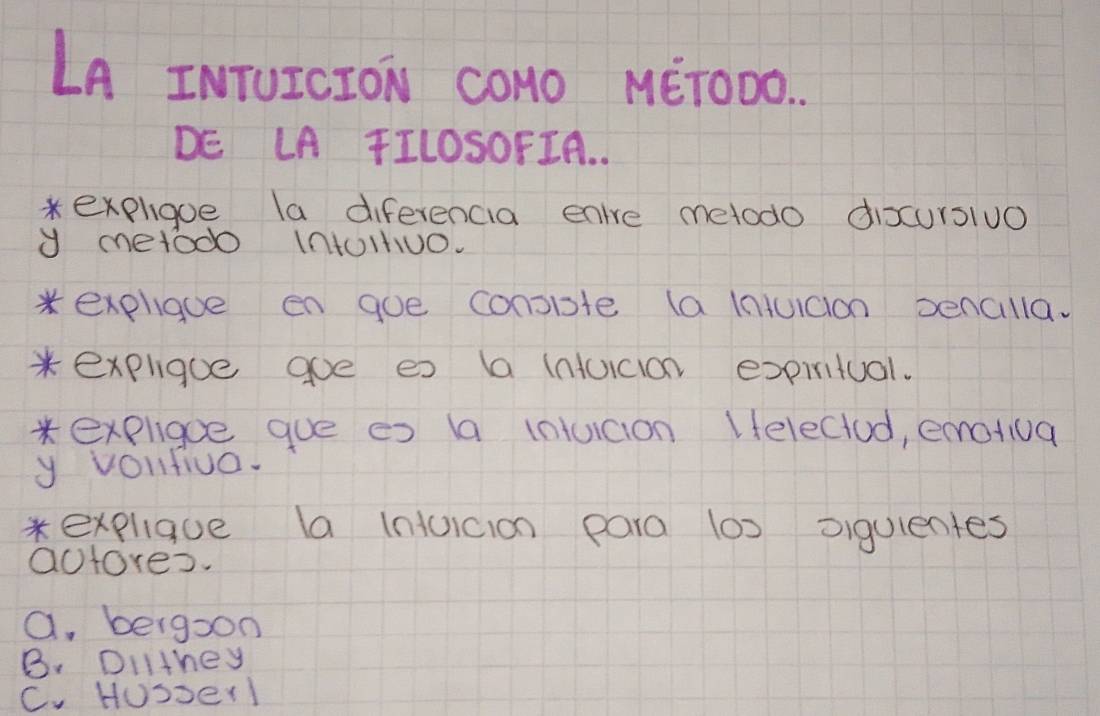 LA INTUICIÓN COMO MÉTODO..
DE LA FILOSOFIA..
* explique la diferencia entre metodo discursivo
y metodo intuitivo.
* explique en que consiste la intuicion sencilla.
* explique que es la intuicion espiritual.
* explique que es la intuicion itelectud, emotiva
y volitiva.
* explique la intuicion para los siguientes
autores.
a. bergson
B. Dilthey
C. Husserl